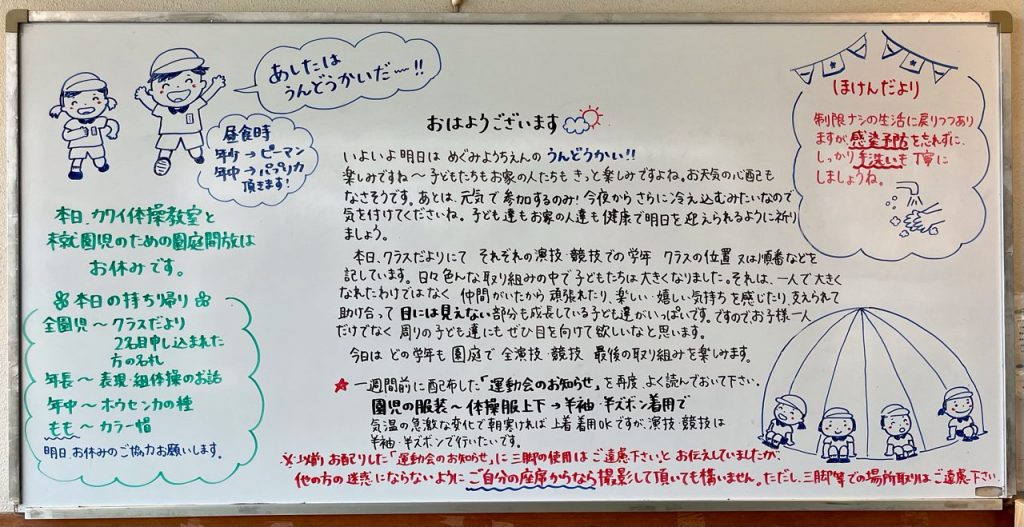 あしたは
うんどうかいだ〜!!
昼食時
年少→ピーマン
年中→パプリカ
頂きます!
本日、カワイ体操教室と
未就園児のための園庭開放は
お休みです。
本日の持ち帰り
全園児〜クラスだより
2名目申し込まれた
方の名札
年長〜表現・組体操のお話
年中〜ホウセンカの種
もも〜カラー帽
明日、お休みのご協力お願いします。
おはようございます
いよいよ明日は めぐみようちえんの うんどうかい!!
楽しみですね〜子どもたちもお家の人たちも きっと楽しみですよね。お天気の心配も
なさそうです。あとは、元気で参加するのみ!今夜からさらに冷え込むみたいなので
気を付けてくださいね。子ども達もお家の人達も健康で明日を迎えられるように祈り
ましょう。
本日、クラスだよりにて それぞれの演技・競技での学年 クラスの位置 又は順番などを
記しています。日々色んな取り組みの中で子どもたちは大きくなりました。それは、一人で大きく
なれたわけではなく 仲間がいたから頑張れたり、楽しい・嬉しい気持ちを感じたり、支えられて
助け合って 目には見えない部分も成長している子ども達がいっぱいです。ですのでお子様一人
だけでなく 周りの子ども達にも ぜひ目を向けて欲しいなと思います。
今日は どの学年も 園庭で 全演技・競技 最後の取り組みを楽しみます。
★ 一週間前に配布した「運動会のお知らせ」を再度、よく読んでおいて下さい。
園児の服装〜体操服上下→半袖・半ズボン着用で
気温の急激な変化で朝寒ければ 上着着用OKですが、演技・競技は
半袖・半ズボンで行いたいです。
※以前 お配りした「運動会のお知らせ」に 三脚の使用は ご遠慮下さいと お伝えしていましたが、
他の方の迷惑にならないように ご自分の座席からなら撮影して頂いても構いません。ただし、三脚等での場所取りは ご遠慮下さい
ほけんだより
制限ナシの生活に戻りつつあり
ますが感染予防を忘れずに、
しっかり手洗いも丁寧に
しましょうね。